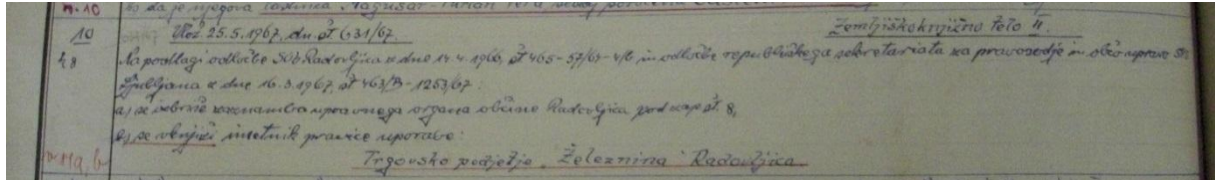 n. 10 b) da je njegova
10 Vlož. 25.5.1967, dn. št 631/67. Zemljiškoknjižno telo II.
k 8 Na podlagi odločbe SOb Radovljica z dne 14.4.1966, št 465-57/64-4/6 in odločbe republiškega sekretariata za pravosodje in obč. upravo SRS
Ljubljana z dne 16.3.1967, št 463/B-1253/67:
a) se izbriše zaznamba upravnega organa občine Radovljica pod zap. št. 8,
b) se vknjiži imetnik pravice uporabe:
Trgovsko podjetje "Železnina" Radovljica.